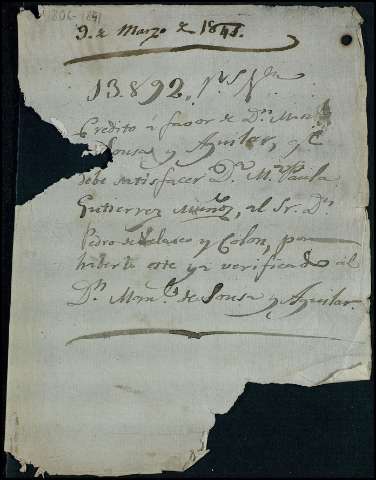 806-1841
9. de Marzo de 1841.
13.892, rs Vn
Credito á favor de Dn Man
Sousa y Aguilar, y
debe satisfacer Da Ma Paula
Gutierrez Muñoz, al Sr. Dn
Pedro de Velasco y Colon, por
haberlo este ya verificado al
Dn Manl de Sousa y Aguilar.